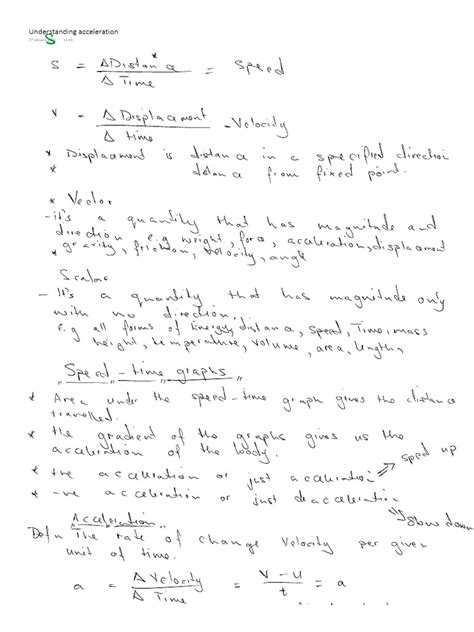 Understanding acceleration
S
S = ΔDistance / Δ Time = Speed
V = Δ Displacement / Δ time - Velocity
* Displacement is distance in a specified direction
* distance from fixed point.
* Vector
- it's a quantity that has magnitude and
direction e.g weight, force, acceleration, displacement
* gravity, friction, velocity, angle
Scalar
- It's a quantity that has magnitude only
with no direction.
E.g all forms of Energy, distance, speed, Time, mass
height, temperature, volume, area, length,
Speed - time graphs
* Area under the speed-time graph gives the distance
travelled.
* the gradient of the graphs gives us the
acceleration of the body.
* +ve acceleration or just acceleration ⇒ speed up
* -ve acceleration or just deacceleration
⇒ slow down
Acceleration
Defn The rate of change Velocity per given
unit of time.
a = Δ Velocity / Δ Time = V - U / t = a